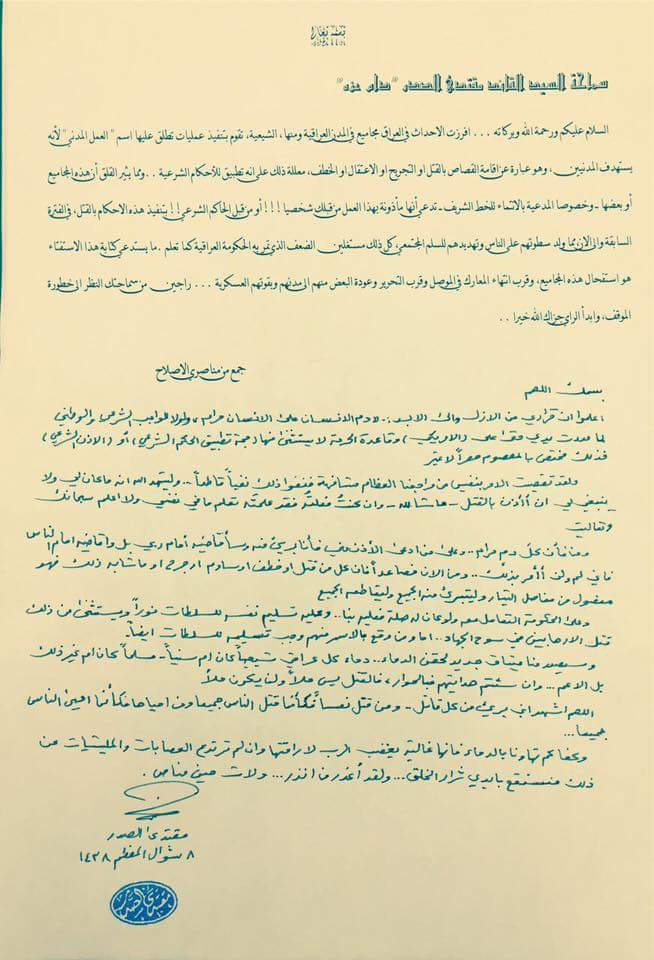 بسمه تعالى
سماحة السيد القائد مقتدى الصدر "دام عزه"
السلام عليكم ورحمة الله وبركاته ... افرزت الاحداث في العراق مجاميع في المدن العراقية ومنها، الشيعية، تقوم بتنفيذ عمليات تطلق عليها اسم "العمل المدني" لأنه
يستهدف المدنيين، وهو عبارة عن اقامة القصاص بالقتل او التجريح او الاعتقال او الخطف، معللة ذلك على انه تطبيق للأحكام الشرعية .. ومما يثير القلق أن هذه المجاميع
أو بعضها - وخصوصا المدعية بالانتماء للخط الشريف - تدعي أنها مأذونة بهذا العمل من قبلك شخصيا !!! أو من قبل الحاكم الشرعي !! بتنفيذ هذه الاحكام بالقتل، في الفترة
السابقة والى الآن مما ولد سطوتهم على الناس وتهديدهم للسلم المجتمعي كل ذلك مستغلين الضعف الذي تمر به الحكومة العراقية كما تعلم . ما يستدعي كتابة هذا الاستفتاء
هو استفحال هذه المجاميع، وقرب انتهاء المعارك في الموصل وقرب التحرير وعودة البعض منهم الى مدنهم وبقوتهم العسكرية ... راجين من سماحتك النظر الى خطورة
الموقف، وابدأ الراي جزاك الله خيرا ..
جمع من مناصري الاصلاح
بسمك اللهم
اعلموا ان قراري من الازل والى الابد :. دم الانسان على الانسان حرام، ولولا الواجب الشرعي والوطني
لما مددت يدي حقا على (الامريكي) وقاعدة الحرمة لا يستثنى منها (حجة تطبيق الحكم الشرعي) أو (الاذن الشرعي)
فذلك مختص بالمعصوم حصراً لا غير
ولقد تقصيت الامر بنفسي من مراجعنا العظام مشافهة فنفوا ذلك نفياً قاطعاً .. وليشهد الله انه ما كان لي ولا
ينبغي لي ان أأذن بالقتل - حاشا لله - وان كنتُ فعلتُه فقد علمتَه تعلم ما في نفسي ولا اعلم سبحانك
وتعاليت
ومنا فأن كل دم حرام .. وعلى من ادعى الأذن مني فأنا بريء منه وسأقاضيه أمام ربي بل وأقاضيه امام الناس
فاني لم ولن أأمر بذلك .. ومن الان فصاعداً فان كل من قتل او خطف او ساوم او جرح او ما شابه ذلك فهو
مفصول من مفاصل التيار وليتبرئ منه الجميع وليقاطعه الجميع
وعلى الحكومة التعامل معه ولو كان له صلة فعلية بنا .. وعليه تسليم نفسه للسلطات فوراً ويستثنى من ذلك
قتل الارهابيين في سوح الجهاد .. اما من وقع بالاسر منهم وجب تسليمه للسلطات ايضاً.
وسيصدر منا ميثاق جديد لحقن الدماء .. دماء كل عراقي شيعياً كان ام سنياً - مسلماً كان ام غير ذلك
بل الاعم .. وان شئتم هدايتهم فبالحوار، فالقتل ليس حلاً ولن يكون حلاً
اللهم اشهد اني بريء من كل قاتل .. ومن قتل نفساً فكأنما قتل الناس جميعاً ومن احياها فكأنما احيى الناس
جميعاً ...
وكفاكم تهاوناً بالدماء فانها غالية يغضب الرب لاراقتها وان لم ترتدع العصابات والمليشيات من
ذلك فسنقع بأيدي شرار الخلق ... ولقد أعذر من انذر ... ولات حين مناص .
مقتدى الصدر
٨ شوال المعظم ١٤٣٨
مقتدى الصدر